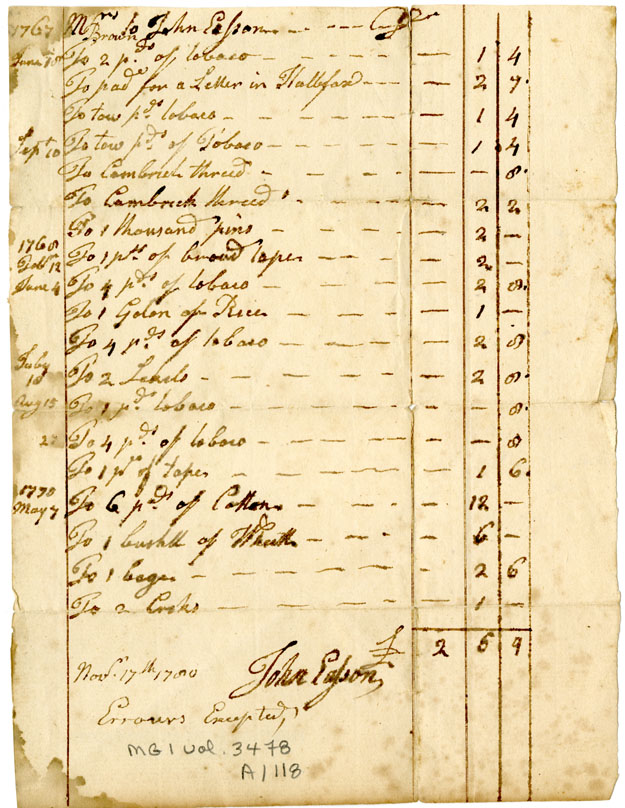 1767 Mrs Brown to John Easson Dr
June 10 To 2 pds of tobaco — — 1 4
To pade for a Letter in Hallifax — — 2 7
To tow pds tobaco — — 1 4
Sept 10 To tow pds of Tobaco — — 1 4
To Cambrick threed — — — 8
To Cambrick threed — — 2 2
To 1 thousand pins — — 2 —
1768
Febr 12 To 1 ps of broad tape — — 2 —
June 4 To 4 pds of tobaco — — 2 8
To 1 Galon of Rice — — 1 —
To 4 pds of tobaco — — 2 8
July 10 To 2 — — 2 8
Aug 15 To 1 pd tobaco — — — 8
To 4 pds of tobaco — — — 8
To 1 ps of tape — — 1 6
1770
May 7 To 6 pds of Cotton — 12 —
To 1 bushll of Wheatt — 6 —
To 1 bage — — 2 6
To 2 — — 1 —
£ 2 5 9
Novr 17th 1780 John Easson
Errours Excepted,
MG 1 vol. 3478
A/118